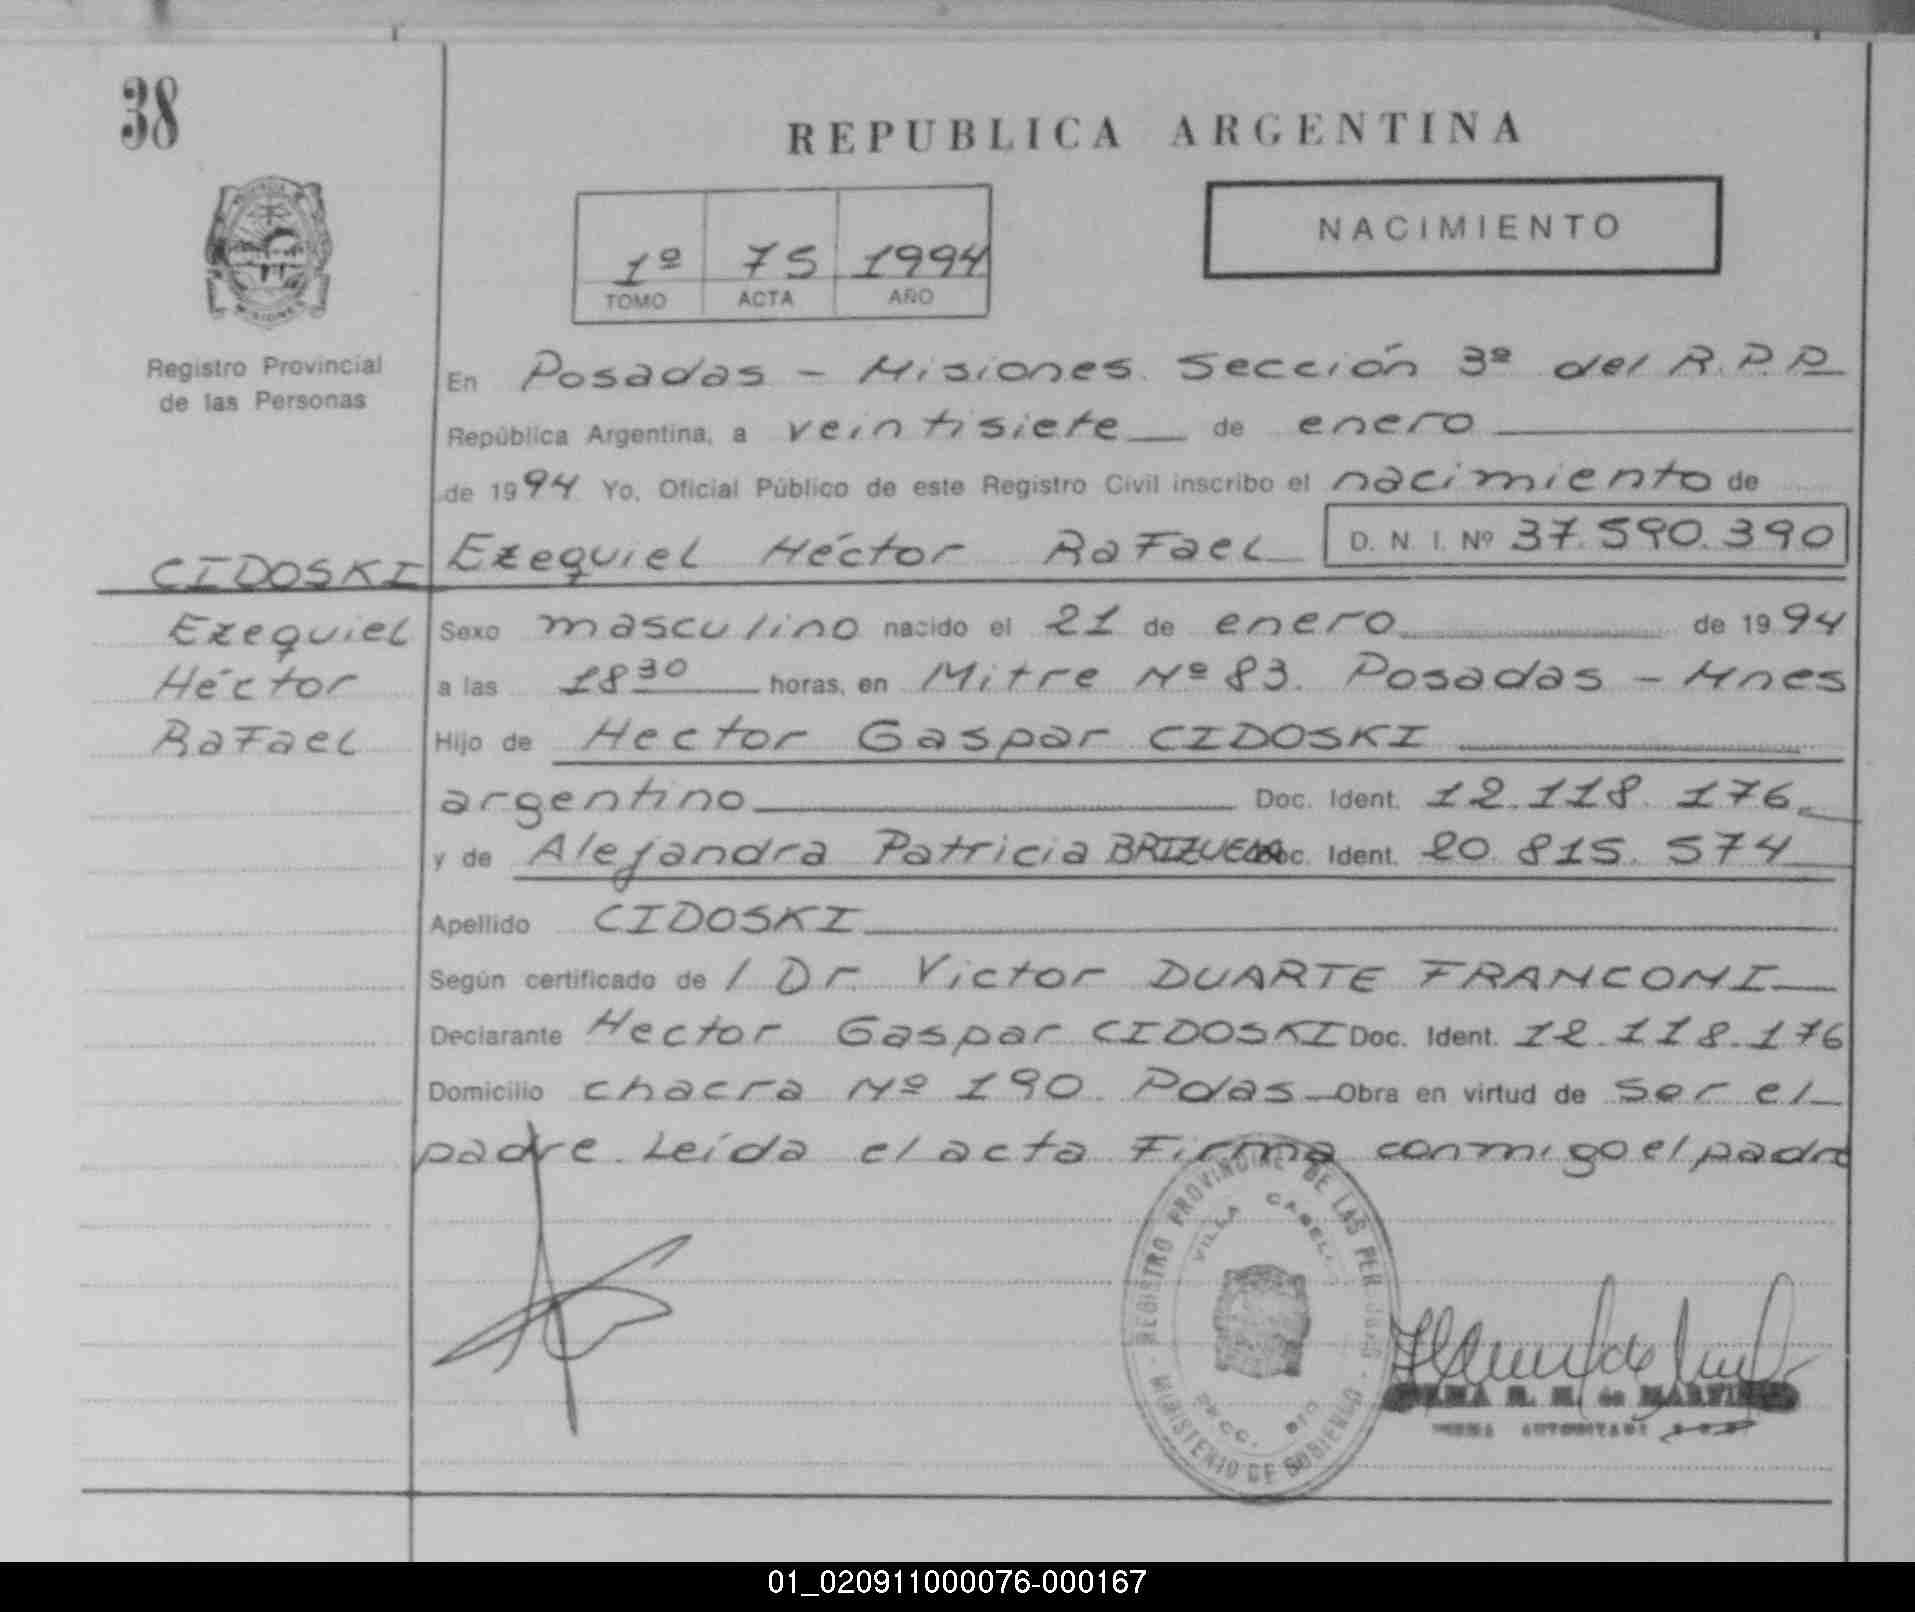 38
REPUBLICA ARGENTINA
NACIMIENTO
1º 75 1994
TOMO ACTA AÑO
Registro Provincial
de las Personas
En Posadas - Misiones. Sección 3ª del R.P.P.
República Argentina, a veintisiete de enero
de 1994 Yo, Oficial Público de este Registro Civil inscribo el nacimiento de
Ezequiel Héctor Rafael D. N. I. Nº 37.590.390
CIDOSKI
Ezequiel
Héctor
Rafael
Sexo masculino nacido el 21 de enero de 1994
a las 18 30 horas, en Mitre Nº 83. Posadas - Mnes
Hijo de Hector Gaspar CIDOSKI
argentino Doc. Ident. 12.118.176
y de Alejandra Patricia BRIZUELA Doc. Ident. 20.815.574
Apellido CIDOSKI
Según certificado de / Dr. Victor DUARTE FRANCONI
Declarante Hector Gaspar CIDOSKI Doc. Ident. 12.118.176
Domicilio chacra Nº 190. Pdas Obra en virtud de ser el
padre. Leída el acta firma conmigo el padre
REGISTRO PROVINCIAL DE LAS PERSONAS
VILLA CABELLO
SECC.
MINISTERIO DE GOBIERNO
01_020911000076-000167